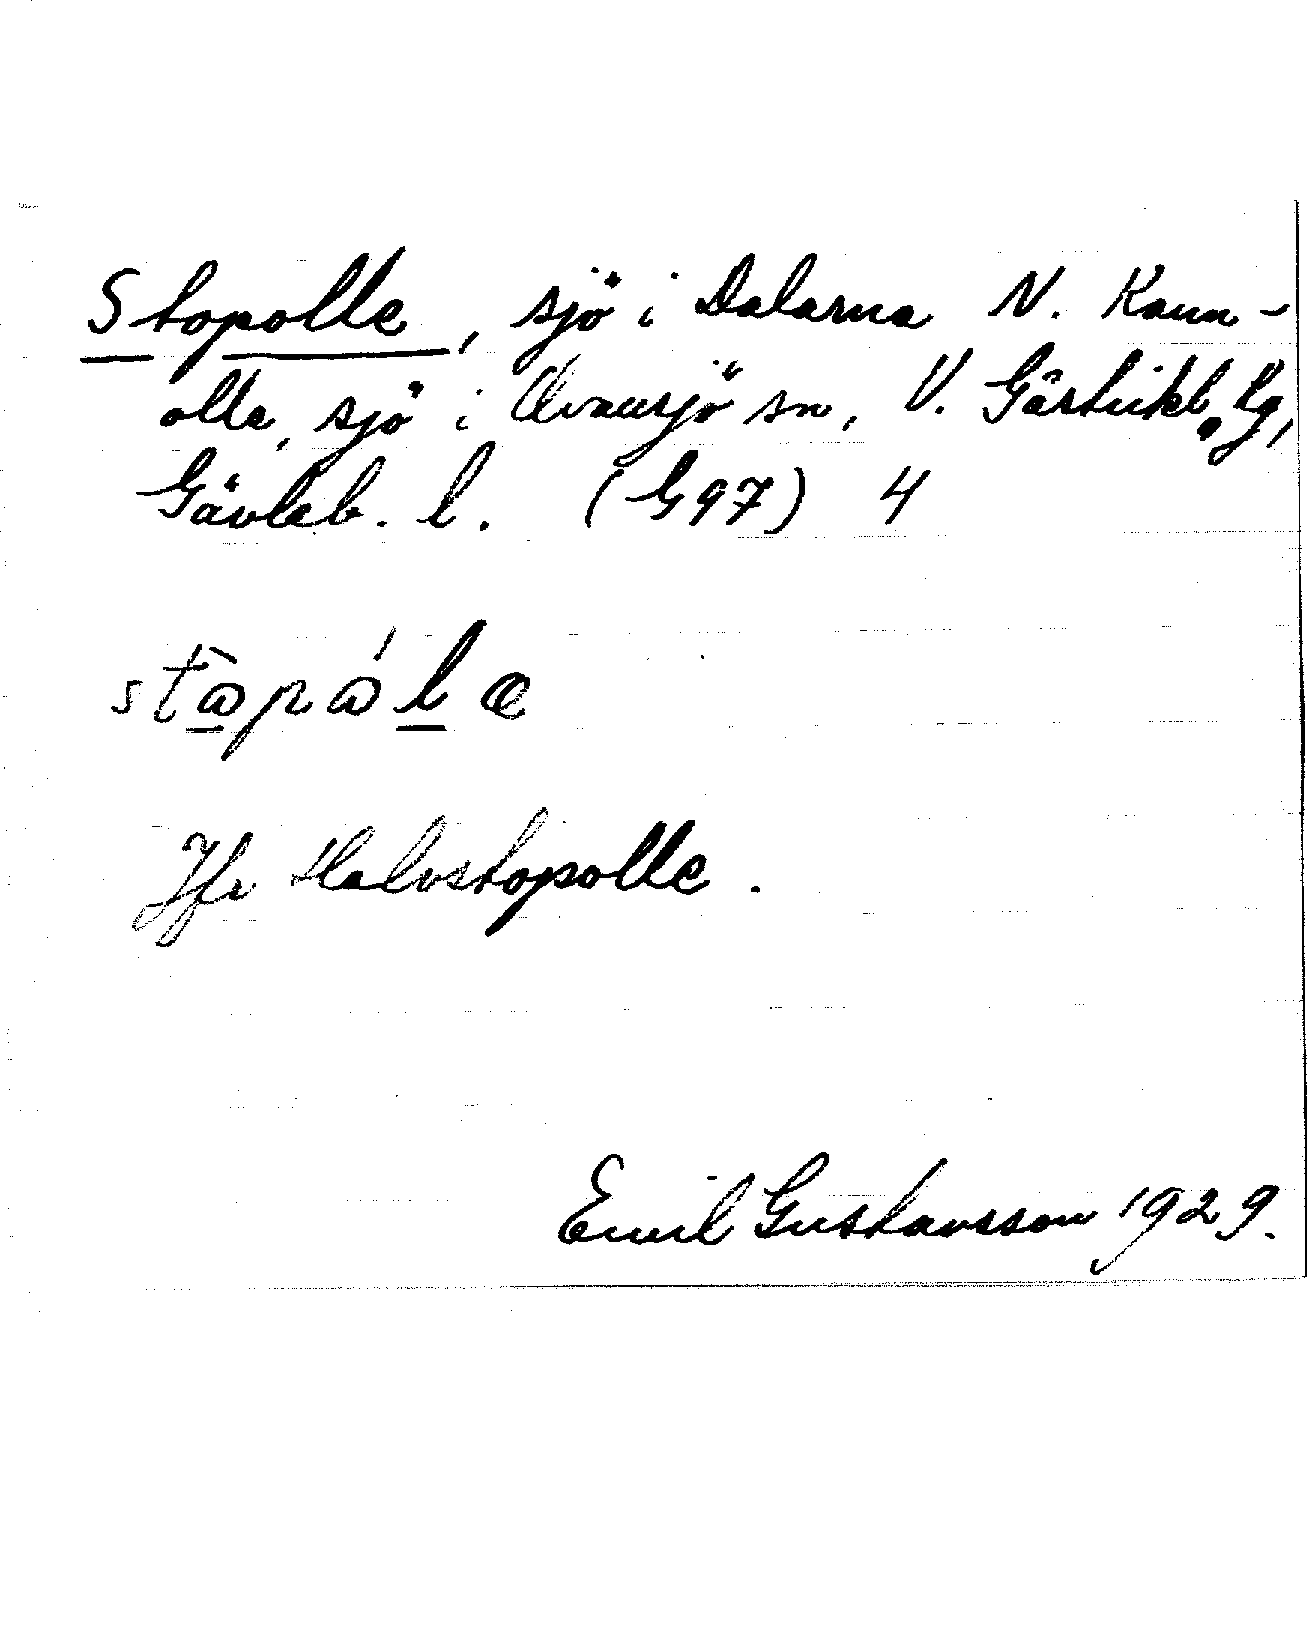 Stopolle, sjö i Dalarna N. Kann-
olle, sjö i Ovansjö sn, V. Gästrikl. tg,
Gävleb. l. (G97) 4
Jfr Halvstopolle.
Emil Gustavsson 1929.